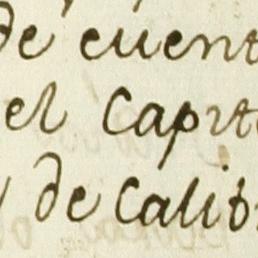 de cuent
el Capit
de calib